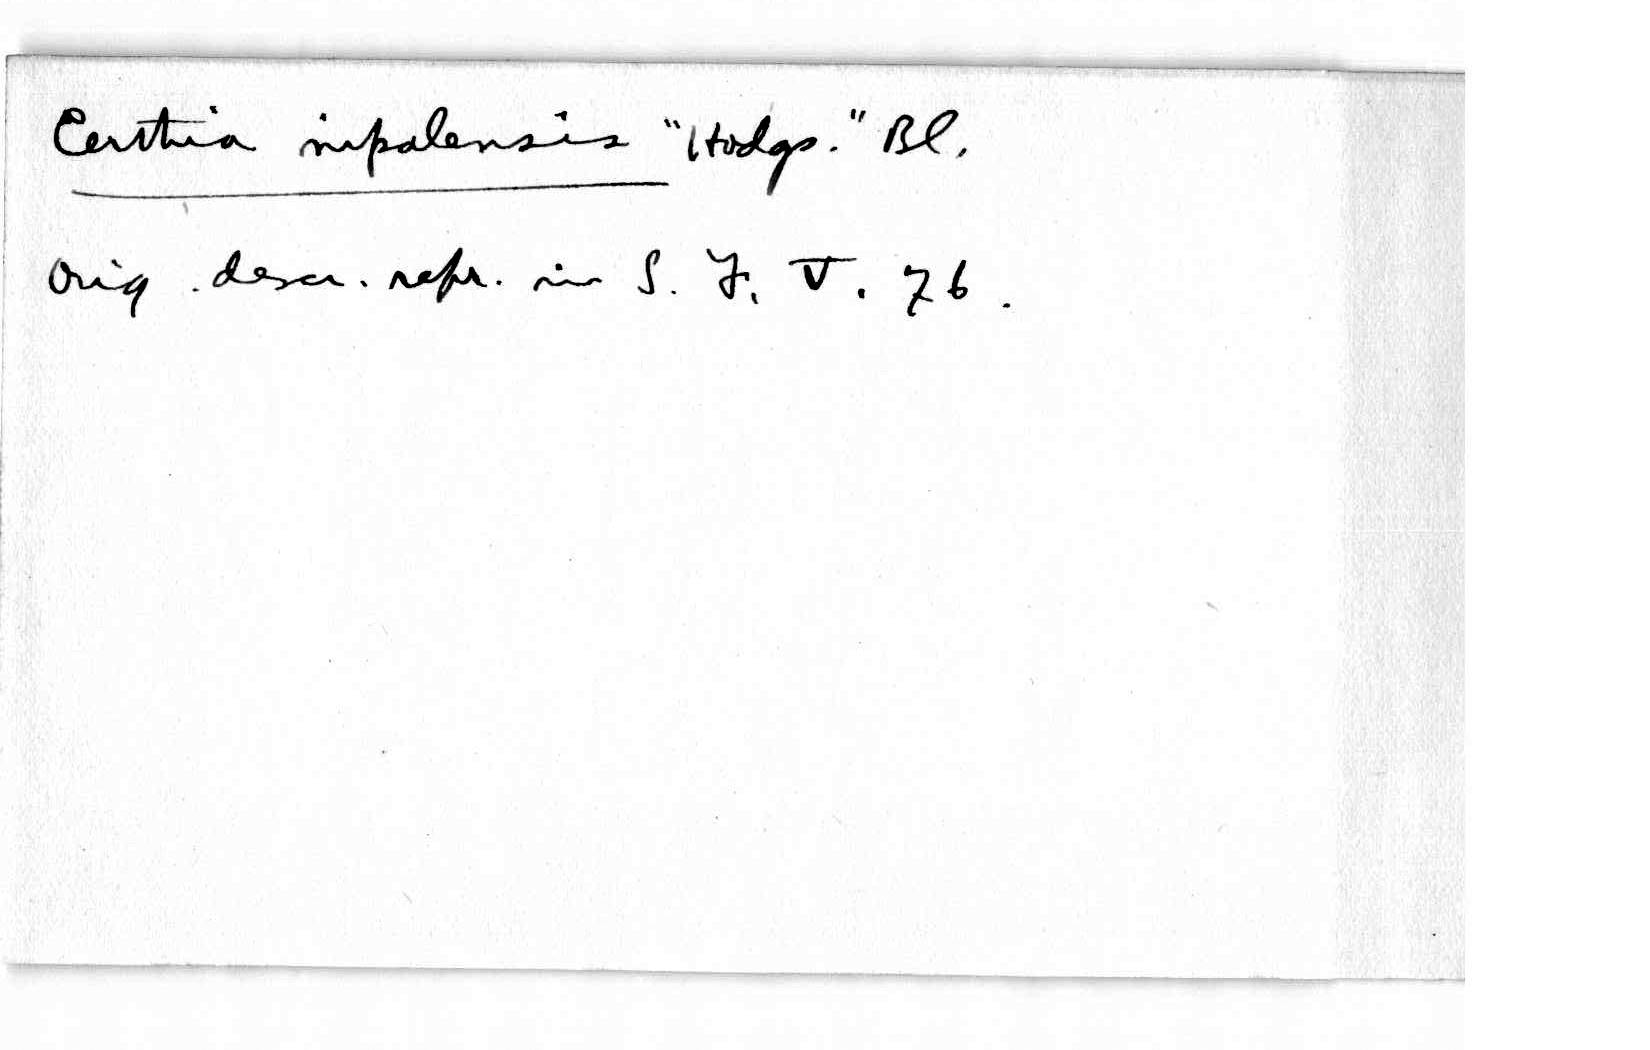 Certhia nipalensis "Hodgs." Bl.
Orig. descr. repr. in S. F. V. 76.